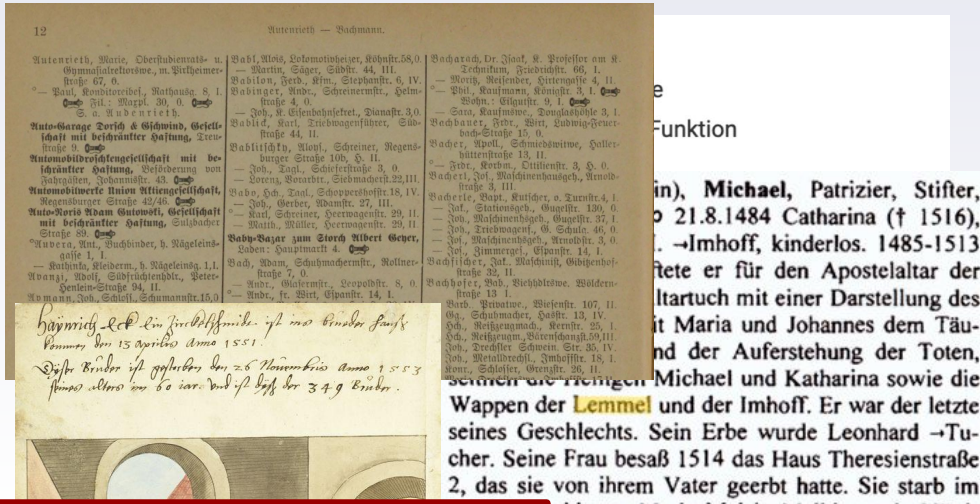 12
Autenrieth — Bachmann.
Autenrieth, Marie, Oberstudienrats- u.
Gymnasialrektorswe., m. Pirkheimer-
straße 67, 0.
°— Paul, Konditoreibes., Rathausg. 8, I.
Fil.: Maxpl. 30, 0.
S. a. Audenrieth.
Auto-Garage Dorsch & Gschwind, Gesell-
schaft mit beschränkter Haftung, Treu-
straße 9.
Automobildroschkengesellschaft mit be-
schränkter Haftung, Beförderung von
Fahrgästen, Johannisstr. 43.
Automobilwerke Union Aktiengesellschaft,
Regensburger Straße 42/46.
Auto-Noris Adam Gutowski, Gesellschaft
mit beschränkter Haftung, Sulzbacher
Straße 89.
°Auvera, Ant., Buchbinder, h. Nägeleins-
gasse 1, I.
— Kathinka, Kleiderm., h. Nägeleinsg. 1, I.
Avanzi, Adolf, Südfrüchtenhdlr., Peter-
Henlein-Straße 94, II.
Aymann, Joh., Schloss., Schumannstr. 15, 0
Babl, Alois, Lokomotivheizer, Köhnstr. 58, 0.
— Martin, Säger, Südstr. 44, III.
Babilon, Ferd., Kfm., Stephanstr. 6, IV.
Babinger, Andr., Schreinermstr., Helm-
straße 4, 0.
— Joh., K. Eisenbahnsekret., Dianastr. 3, 0.
Bablick, Karl, Triebwagenführer, Süd-
straße 44, II.
Bablitschky, Aloys, Schreiner, Regens-
burger Straße 10b, H. II.
— Joh., Tagl., Schieferstraße 3, 0.
— Lorenz, Vorarbtr., Siebmacherstr. 22, III.
Babo, Hch., Tagl., Schoppershofstr. 18, IV.
— Joh., Gerber, Adamstr. 27, III.
°— Karl, Schreiner, Heerwagenstr. 29, II.
— Matth., Müller, Heerwagenstr. 29, II.
Baby-Bazar zum Storch Albert Geyer,
Laden: Hauptmarkt 4.
Bach, Adam, Schuhmachermstr., Rollner-
straße 7, 0.
— Andr., Glasermstr., Leopoldstr. 8, 0.
°— Andr., fr. Wirt, Espanstr. 14, I.
Bacharach, Dr. Isaak, K. Professor am K.
Technikum, Friedrichstr. 66, I.
— Moritz, Reisender, Hirtengasse 4, II.
°— Phil., Kaufmann, Königstr. 3, I.
Wohn.: Gilgutstr. 9, I.
— Sara, Kaufmswe., Douglashöhle 3, I.
Bachbauer, Frdr., Wirt, Ludwig-Feuer-
bach-Straße 15, 0.
Bacher, Apoll., Schmiedswitwe, Haller-
hüttenstraße 13, II.
°— Frdr., Korbm., Ottilienstr. 3, H. 0.
Bacherl, Jos., Maschinenhausgeh., Arnold-
straße 3, III.
Bacherle, Bapt., Kutscher, o. Turnstr. 4, I.
— Jak., Stationsgeh., Gugelstr. 130, 0.
— Joh., Maschinenhausgeh., Gugelstr. 37, I.
— Joh., Triebwagenf., G. Schulz. 46, 0.
— Jos., Maschinengeh., Arnoldstr. 3, 0.
— Jos., Zimmergs., Espanstr. 14, I.
Bachfischer, Jak., Maschinist, Gibitzenhof-
straße 32, II.
Bachhofer, Bab., Viehhdlswe., Wölckern-
straße 13 I.
Barb., Privatwe., Wiesenstr. 107, II.
Gg., Schuhmacher, Hasstr. 13, IV.
Hch., Reißzeugmach., Kernstr. 25, I.
Hch., Reißzeugm., Bärenschanzstr. 59, III.
Joh., Drechsler, Schwein. Str. 35, IV.
Joh., Metalldrechsl., Imhofstr. 18, I.
Konr., Schlosser, Grenzstr. 26, II.
e
Funktion
in), Michael, Patrizier, Stifter,
21.8.1484 Catharina († 1516),
. →Imhoff, kinderlos. 1485-1513
tete er für den Apostelaltar der
ltartuch mit einer Darstellung des
it Maria und Johannes dem Täu-
nd der Auferstehung der Toten,
Michael und Katharina sowie die
Wappen der Lemmel und der Imhoff. Er war der letzte
seines Geschlechts. Sein Erbe wurde Leonhard →Tu-
cher. Seine Frau besaß 1514 das Haus Theresienstraße
2, das sie von ihrem Vater geerbt hatte. Sie starb im
Haynrich Eck Ein Zirckelschmidt ist ins bruder hauß
kommen den 13 aprilis Anno 1551
Dyser Bruder ist gestorben den 26 Novembris Anno 1553
seines alters im 60 iar. Und ist dyß der 349 Bruder.